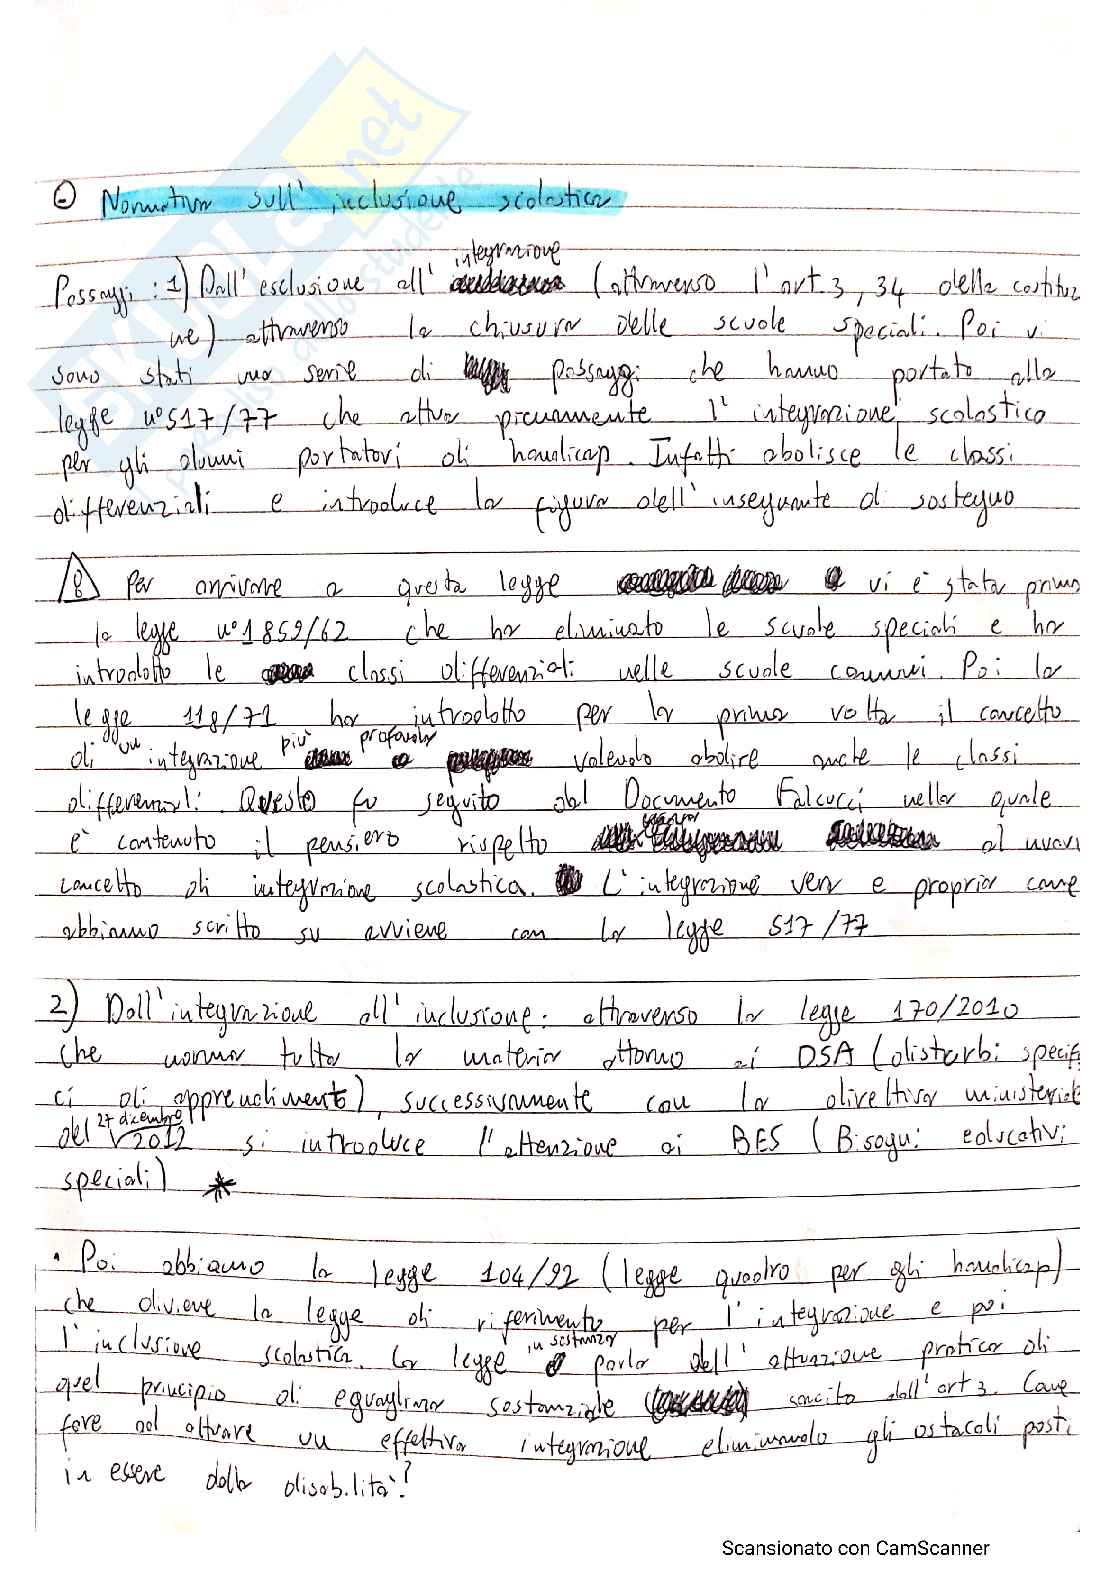 Normativa sull'inclusione scolastica
integrazione
Passaggi: 1) Dall'esclusione all' (attraverso l'art. 3, 34 della costituz
ne) attraverso la chiusura delle scuole speciali. Poi vi
sono stati una serie di passaggi che hanno portato alla
legge n°517/77 che attua pienamente l'integrazione scolastica
per gli alunni portatori di handicap. Infatti abolisce le classi
differenziali e introduce la figura dell'insegnante di sostegno
Per arrivare a questa legge vi è stata prima
la legge n°1859/62 che ha eliminato le scuole speciali e ha
introdotto le classi differenziali nelle scuole comuni. Poi la
legge 118/71 ha introdotto per la prima volta il concetto
di un integrazione più profonda volendo abolire anche le classi
differenziali. Questo fu seguito dal Documento Falcucci nella quale
è contenuto il pensiero rispetto al nuovo
concetto di integrazione scolastica. L'integrazione vera e propria come
abbiamo scritto su avviene con la legge 517/77
2) Dall'integrazione all'inclusione: attraverso la legge 170/2010
che norma tutta la materia attorno ai DSA (disturbi specifi
ci di apprendimento), successivamente con la direttiva ministeriale
del 27 dicembre 2012 si introduce l'attenzione ai BES (Bisogni educativi
speciali) *
• Poi abbiamo la legge 104/92 (legge quadro per gli handicap)
che diviene la legge di riferimento per l'integrazione e poi
l'inclusione scolastica. La legge in sostanza parla dell'attuazione pratica di
quel principio di eguaglianza sostanziale sancito dall'art 3. Come
fare ad attuare un effettiva integrazione eliminando gli ostacoli posti
in essere dalla disabilità?
Scansionato con CamScanner
SKUOLA.net